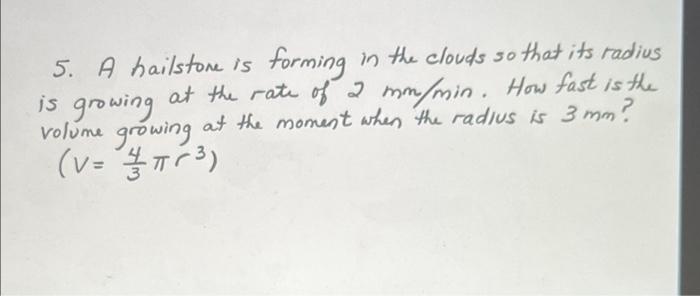 5. A hailstone is forming in the clouds so that its radius
is growing at the rate of 2 mm/min. How fast is the
volume growing at the moment when the radius is 3 mm?
(V = 4/3 π r³)